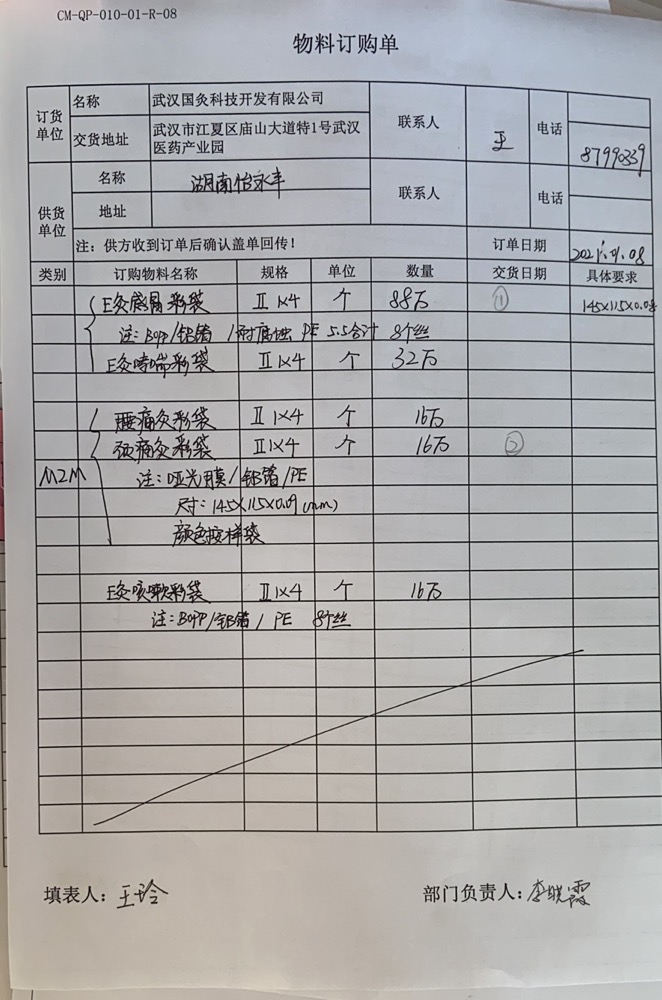 CM-QP-010-01-R-08
物料订购单
订货单位 名称 武汉国灸科技开发有限公司 联系人 王 电话 87990339
交货地址 武汉市江夏区庙山大道特1号武汉医药产业园
供货单位 名称 湖南怡永丰 联系人 电话
地址
注：供方收到订单后确认盖单回传！ 订单日期 2021.01.08
类别 订购物料名称 规格 单位 数量 交货日期 具体要求
E灸感冒彩袋 Ⅱ 1×4 个 88万 ① 145×115×0.08
注：Bopp/铝箔/耐腐蚀 PE 5.5合计 8个丝
E灸哮喘彩袋 Ⅱ 1×4 个 32万
腰痛灸彩袋 Ⅱ 1×4 个 16万
颈痛灸彩袋 Ⅱ 1×4 个 16万 ②
MZM 注：哑光膜/铝箔/PE
尺寸：145×115×0.09 (mm)
颜色按样袋
E灸咳嗽彩袋 Ⅱ 1×4 个 16万
注：BOPP/铝箔/ PE 8个丝
填表人：王玲 部门负责人：李晓霞